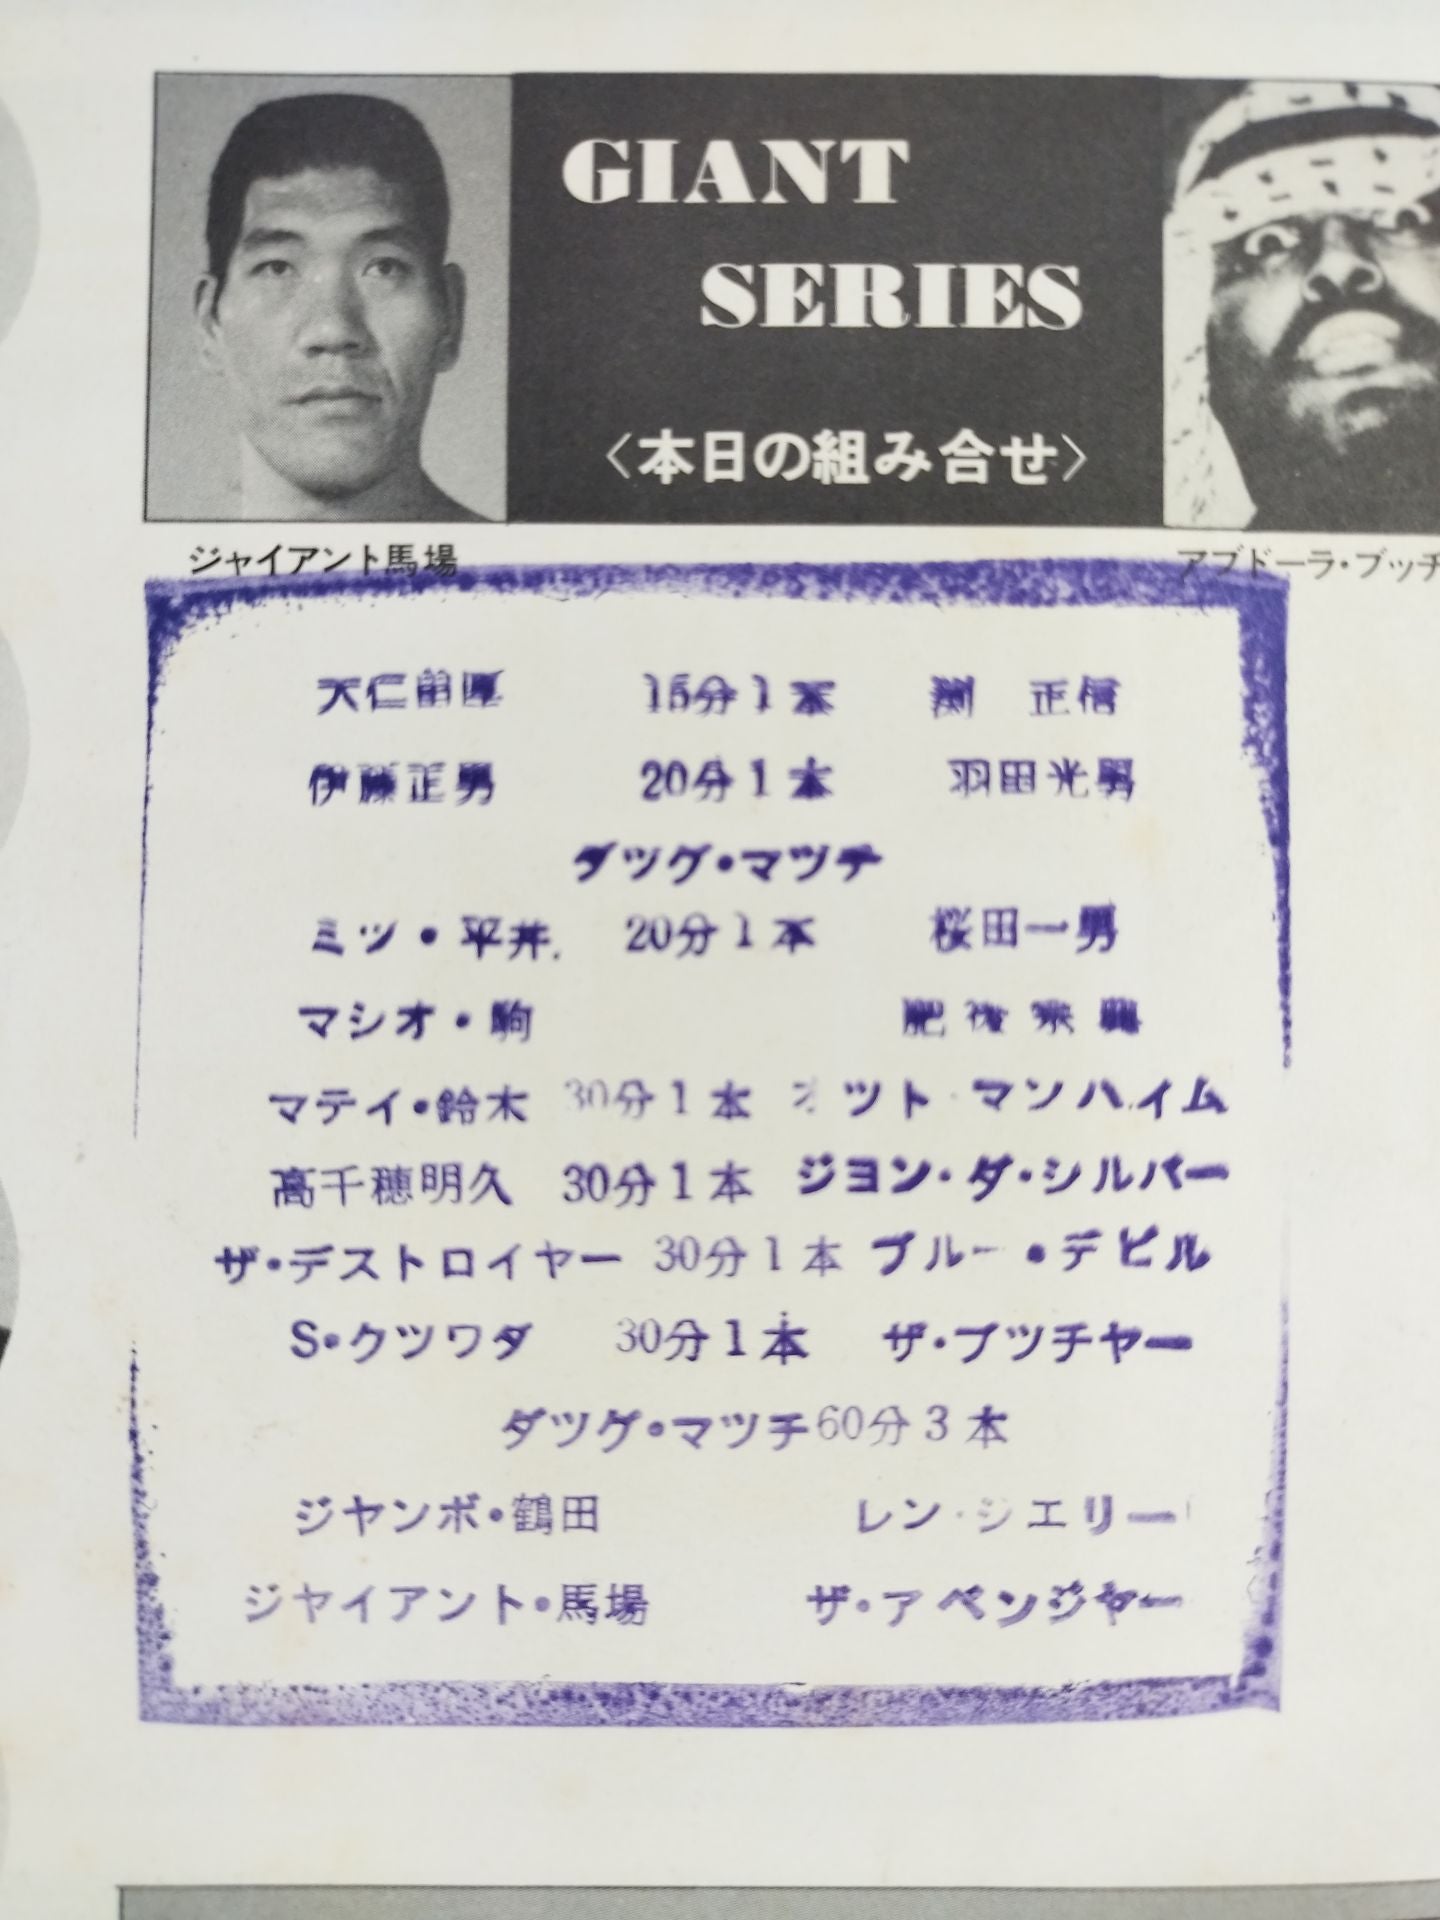 GIANT
SERIES
〈本日の組み合せ〉
ジャイアント馬場
アブドーラ・ブッチ
大仁田厚 15分1本 渕 正信
伊藤正男 20分1本 羽田光男
タツグ・マツチ
ミツ・平井 20分1本 桜田一男
マシオ・駒 肥後宗典
マテイ・鈴木 30分1本 オツト・マンハイム
高千穂明久 30分1本 ジヨン・ダ・シルバー
ザ・デストロイヤー 30分1本 ブルー・デビル
S・クツワダ 30分1本 ザ・ブツチヤー
タツグ・マツチ60分3本
ジヤンボ・鶴田 レン・シエリー
ジヤイアント・馬場 ザ・アベンジヤー